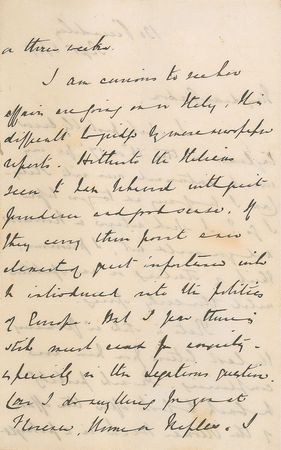 or three weeks.
I am curious to see how
affairs are going on in Italy, it is
difficult to judge by mere newspaper
reports. Hitherto the Italians
seem to have behaved with great
prudence and good sense. If
they carry their point a new
element of great importance will
be introduced into the politics
of Europe. But I fear there is
still much cause for anxiety
especially in the Legations question.
Can I do anything for you at
Florence, Rome or Naples. I